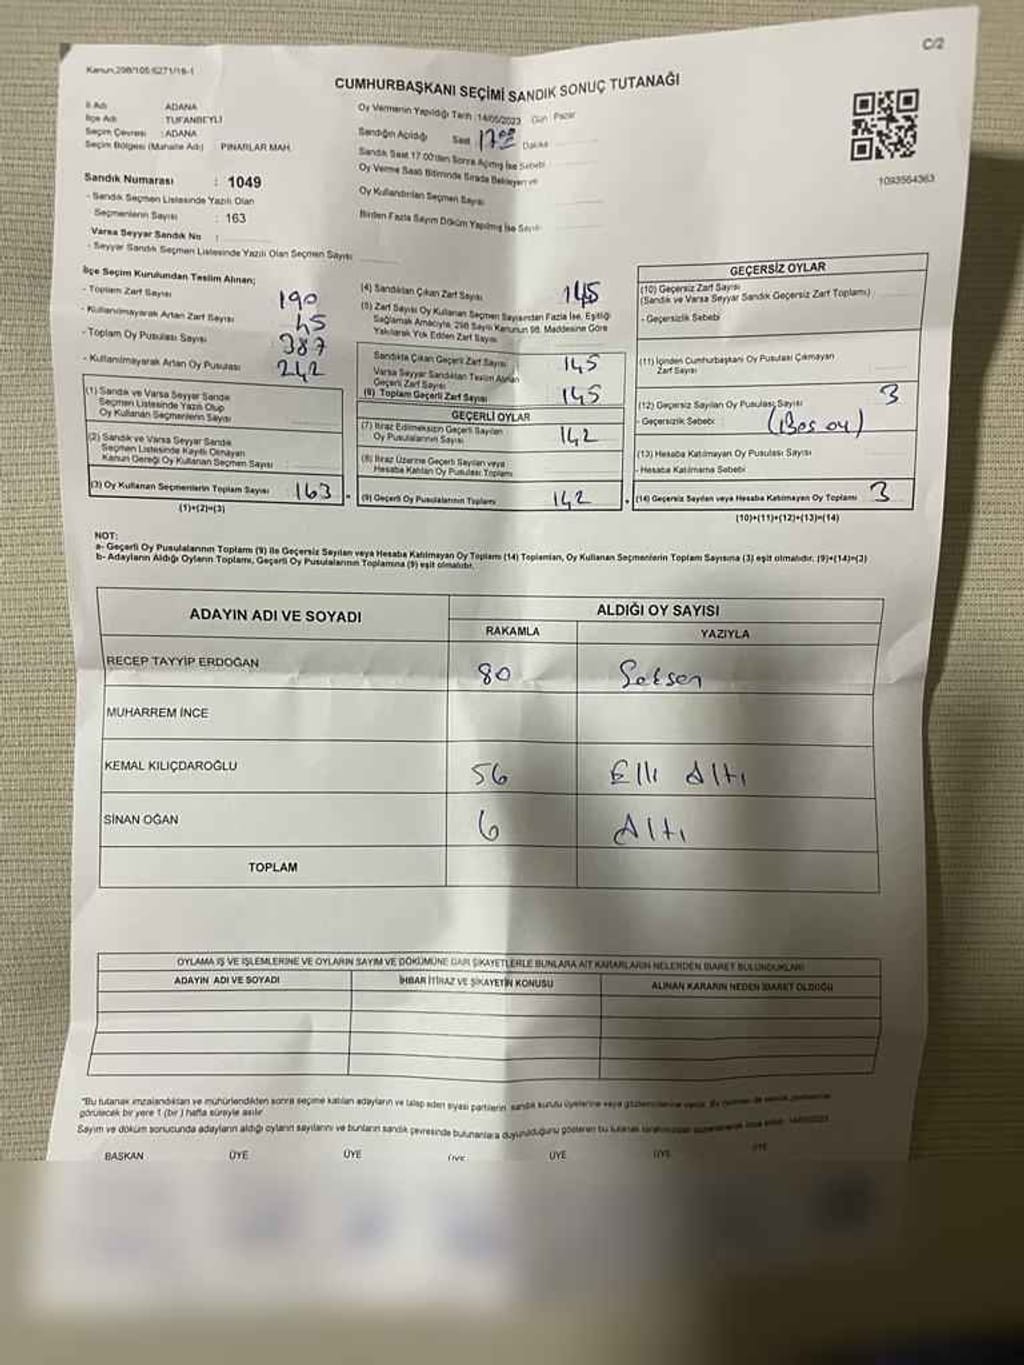 C/2
Kanun:298/105:6271/16-1
CUMHURBAŞKANI SEÇİMİ SANDIK SONUÇ TUTANAĞI
İl Adı ADANA
İlçe Adı TUFANBEYLİ
Seçim Çevresi : ADANA
Seçim Bölgesi (Mahalle Adı) : PINARLAR MAH.
Sandık Numarası : 1049
- Sandık Seçmen Listesinde Yazılı Olan
Seçmenlerin Sayısı : 163
Varsa Seyyar Sandık No :
- Seyyar Sandık Seçmen Listesinde Yazılı Olan Seçmen Sayısı
Oy Vermenin Yapıldığı Tarih : 14/05/2023 Gün : Pazar
Sandığın Açıldığı Saat 17:00 Dakika
Sandık Saat 17.00'den Sonra Açılmış İse Sebebi
Oy Verme Saati Bitiminde Sırada Bekleyen ve
Oy Kullandırılan Seçmen Sayısı
Birden Fazla Sayım Döküm Yapılmış İse Sayısı
1093564363
İlçe Seçim Kurulundan Teslim Alınan;
- Toplam Zarf Sayısı 190
- Kullanılmayarak Artan Zarf Sayısı 45
- Toplam Oy Pusulası Sayısı 387
- Kullanılmayarak Artan Oy Pusulası 242
(1) Sandık ve Varsa Seyyar Sandık
Seçmen Listesinde Yazılı Olup
Oy Kullanan Seçmenlerin Sayısı
(2) Sandık ve Varsa Seyyar Sandık
Seçmen Listesinde Kayıtlı Olmayan
Kanun Gereği Oy Kullanan Seçmen Sayısı
(3) Oy Kullanan Seçmenlerin Toplam Sayısı 163
(1)+(2)=(3)
(4) Sandıktan Çıkan Zarf Sayısı 145
(5) Zarf Sayısı Oy Kullanan Seçmen Sayısından Fazla İse, Eşitliği
Sağlamak Amacıyla, 298 Sayılı Kanunun 98. Maddesine Göre
Yakılarak Yok Edilen Zarf Sayısı
Sandıkta Çıkan Geçerli Zarf Sayısı 145
Varsa Seyyar Sandıktan Teslim Alınan
Geçerli Zarf Sayısı
(6) Toplam Geçerli Zarf Sayısı 145
GEÇERLİ OYLAR
(7) İtiraz Edilmeksizin Geçerli Sayılan
Oy Pusulalarının Sayısı 142
(8) İtiraz Üzerine Geçerli Sayılan veya
Hesaba Katılan Oy Pusulası Toplamı
(9) Geçerli Oy Pusulalarının Toplamı 142
GEÇERSİZ OYLAR
(10) Geçersiz Zarf Sayısı
(Sandık ve Varsa Seyyar Sandık Geçersiz Zarf Toplamı)
- Geçersizlik Sebebi
(11) İçinden Cumhurbaşkanı Oy Pusulası Çıkmayan
Zarf Sayısı
(12) Geçersiz Sayılan Oy Pusulası Sayısı 3
- Geçersizlik Sebebi (Boş oy)
(13) Hesaba Katılmayan Oy Pusulası Sayısı
- Hesaba Katılmama Sebebi
(14) Geçersiz Sayılan veya Hesaba Katılmayan Oy Toplamı 3
(10)+(11)+(12)+(13)=(14)
NOT:
a- Geçerli Oy Pusulalarının Toplamı (9) ile Geçersiz Sayılan veya Hesaba Katılmayan Oy Toplamı (14) Toplamları, Oy Kullanan Seçmenlerin Toplam Sayısına (3) eşit olmalıdır. (9)+(14)=(3)
b- Adayların Aldığı Oyların Toplamı, Geçerli Oy Pusulalarının Toplamına (9) eşit olmalıdır.
ADAYIN ADI VE SOYADI ALDIĞI OY SAYISI
RAKAMLA YAZIYLA
RECEP TAYYİP ERDOĞAN 80 Seksen
MUHARREM İNCE
KEMAL KILIÇDAROĞLU 56 Elli Altı
SİNAN OĞAN 6 Altı
TOPLAM
OYLAMA İŞ VE İŞLEMLERİNE VE OYLARIN SAYIM VE DÖKÜMÜNE DAİR ŞİKAYETLERLE BUNLARA AİT KARARLARIN NELERDEN İBARET BULUNDUKLARI
ADAYIN ADI VE SOYADI İHBAR İTİRAZ VE ŞİKAYETİN KONUSU ALINAN KARARIN NEDEN İBARET OLDUĞU
"Bu tutanak imzalandıktan ve mühürlendikten sonra seçime katılan adayların ve talep eden siyasi partilerin, sandık kurulu üyelerine veya gözlemcilerine verilir. Bu
görülecek bir yere 1 (bir) hafta süreyle asılır.
Sayım ve döküm sonucunda adayların aldığı oyların sayılarını ve bunların sandık çevresinde bulunanlara duyurulduğunu gösteren bu tutanak
BAŞKAN ÜYE ÜYE ÜYE ÜYE ÜYE ÜYE